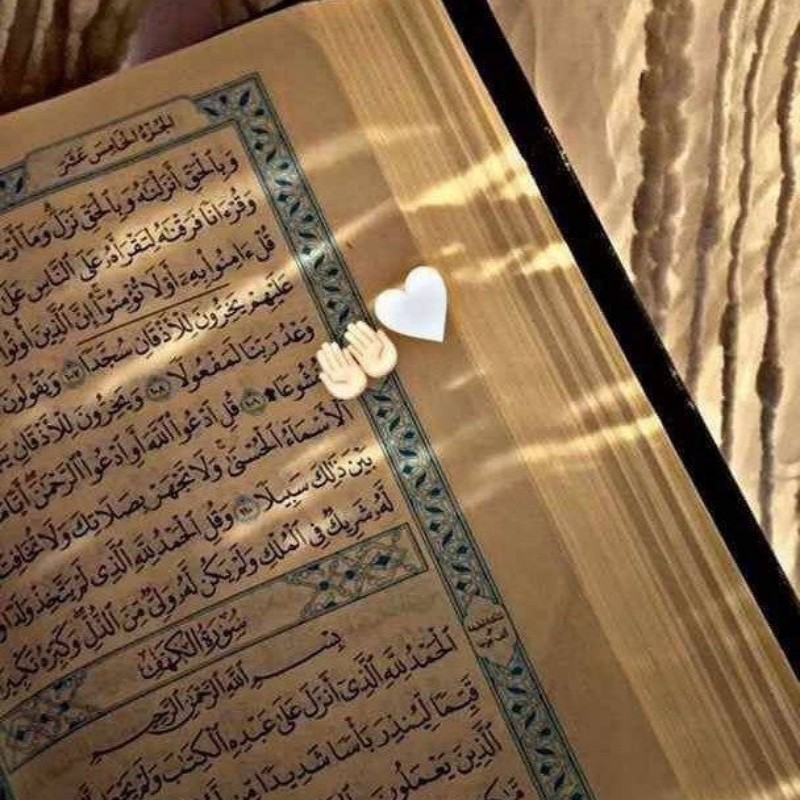 الجزء الخامس عشر
وَبِالْحَقِّ أَنزَلْنَٰهُ وَبِالْحَقِّ نَزَلَ وَمَا
وَقُرْءَانًا فَرَقْنَٰهُ لِتَقْرَأَهُۥ عَلَى النَّاسِ عَلَىٰ
قُلْ ءَامِنُوا۟ بِهِۦٓ أَوْ لَا تُؤْمِنُوٓا۟ إِنَّ الَّذِينَ أُوتُوا۟
عَلَيْهِمْ يَخِرُّونَ لِلْأَذْقَانِ سُجَّدًا ۝١٠٧ وَيَقُولُونَ
وَعْدُ رَبِّنَا لَمَفْعُولًا ۝١٠٨ وَيَخِرُّونَ لِلْأَذْقَانِ
۝١٠٩ قُلِ ادْعُوا۟ اللَّهَ أَوِ ادْعُوا۟ الرَّحْمَٰنَ أَيًّا
الْأَسْمَآءُ الْحُسْنَىٰ وَلَا تَجْهَرْ بِصَلَاتِكَ وَلَا تُخَافِتْ
بَيْنَ ذَٰلِكَ سَبِيلًا ۝١١٠ وَقُلِ الْحَمْدُ لِلَّهِ الَّذِى لَمْ يَتَّخِذْ وَلَدًا
لَّهُۥ شَرِيكٌ فِى الْمُلْكِ وَلَمْ يَكُن لَّهُۥ وَلِىٌّ مِّنَ الذُّلِّ وَكَبِّرْهُ تَكْبِيرًا
سُورَةُ الْكَهْفِ
بِسْمِ اللَّهِ الرَّحْمَٰنِ الرَّحِيمِ
الْحَمْدُ لِلَّهِ الَّذِىٓ أَنزَلَ عَلَىٰ عَبْدِهِ الْكِتَٰبَ وَلَمْ يَجْعَل
قَيِّمًا لِّيُنذِرَ بَأْسًا شَدِيدًا مِّن
الَّذِينَ يَعْمَلُونَ